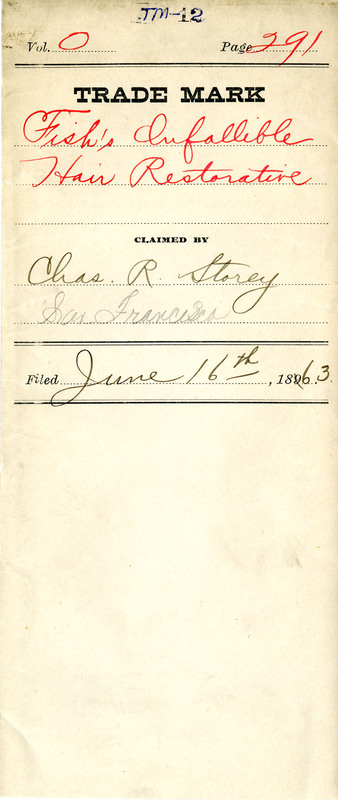 TM-12
Vol. O Page 291
TRADE MARK
Fish's Infallible
Hair Restorative
CLAIMED BY
Chas. R. Storey
San Francisco
Filed June 16th, 1863